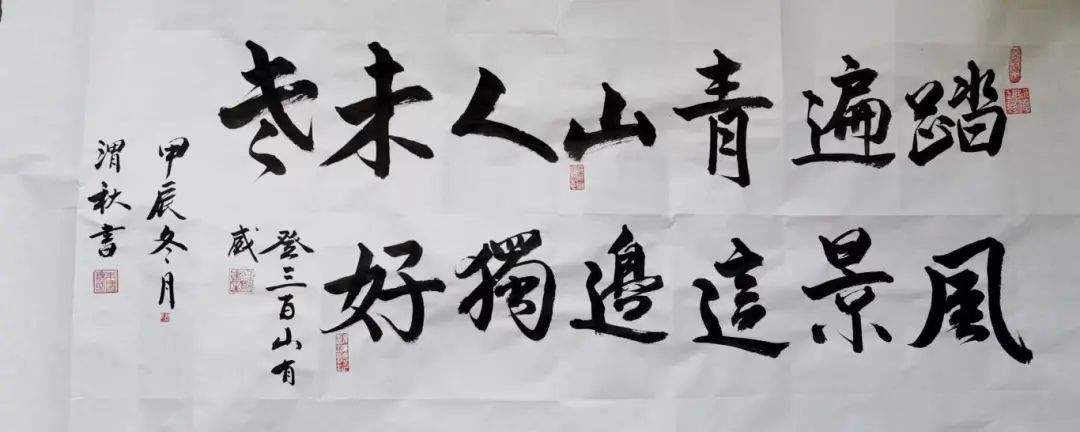 踏遍青山人未老
風景這邊獨好
登三百山有
感
甲辰冬月
渭秋書